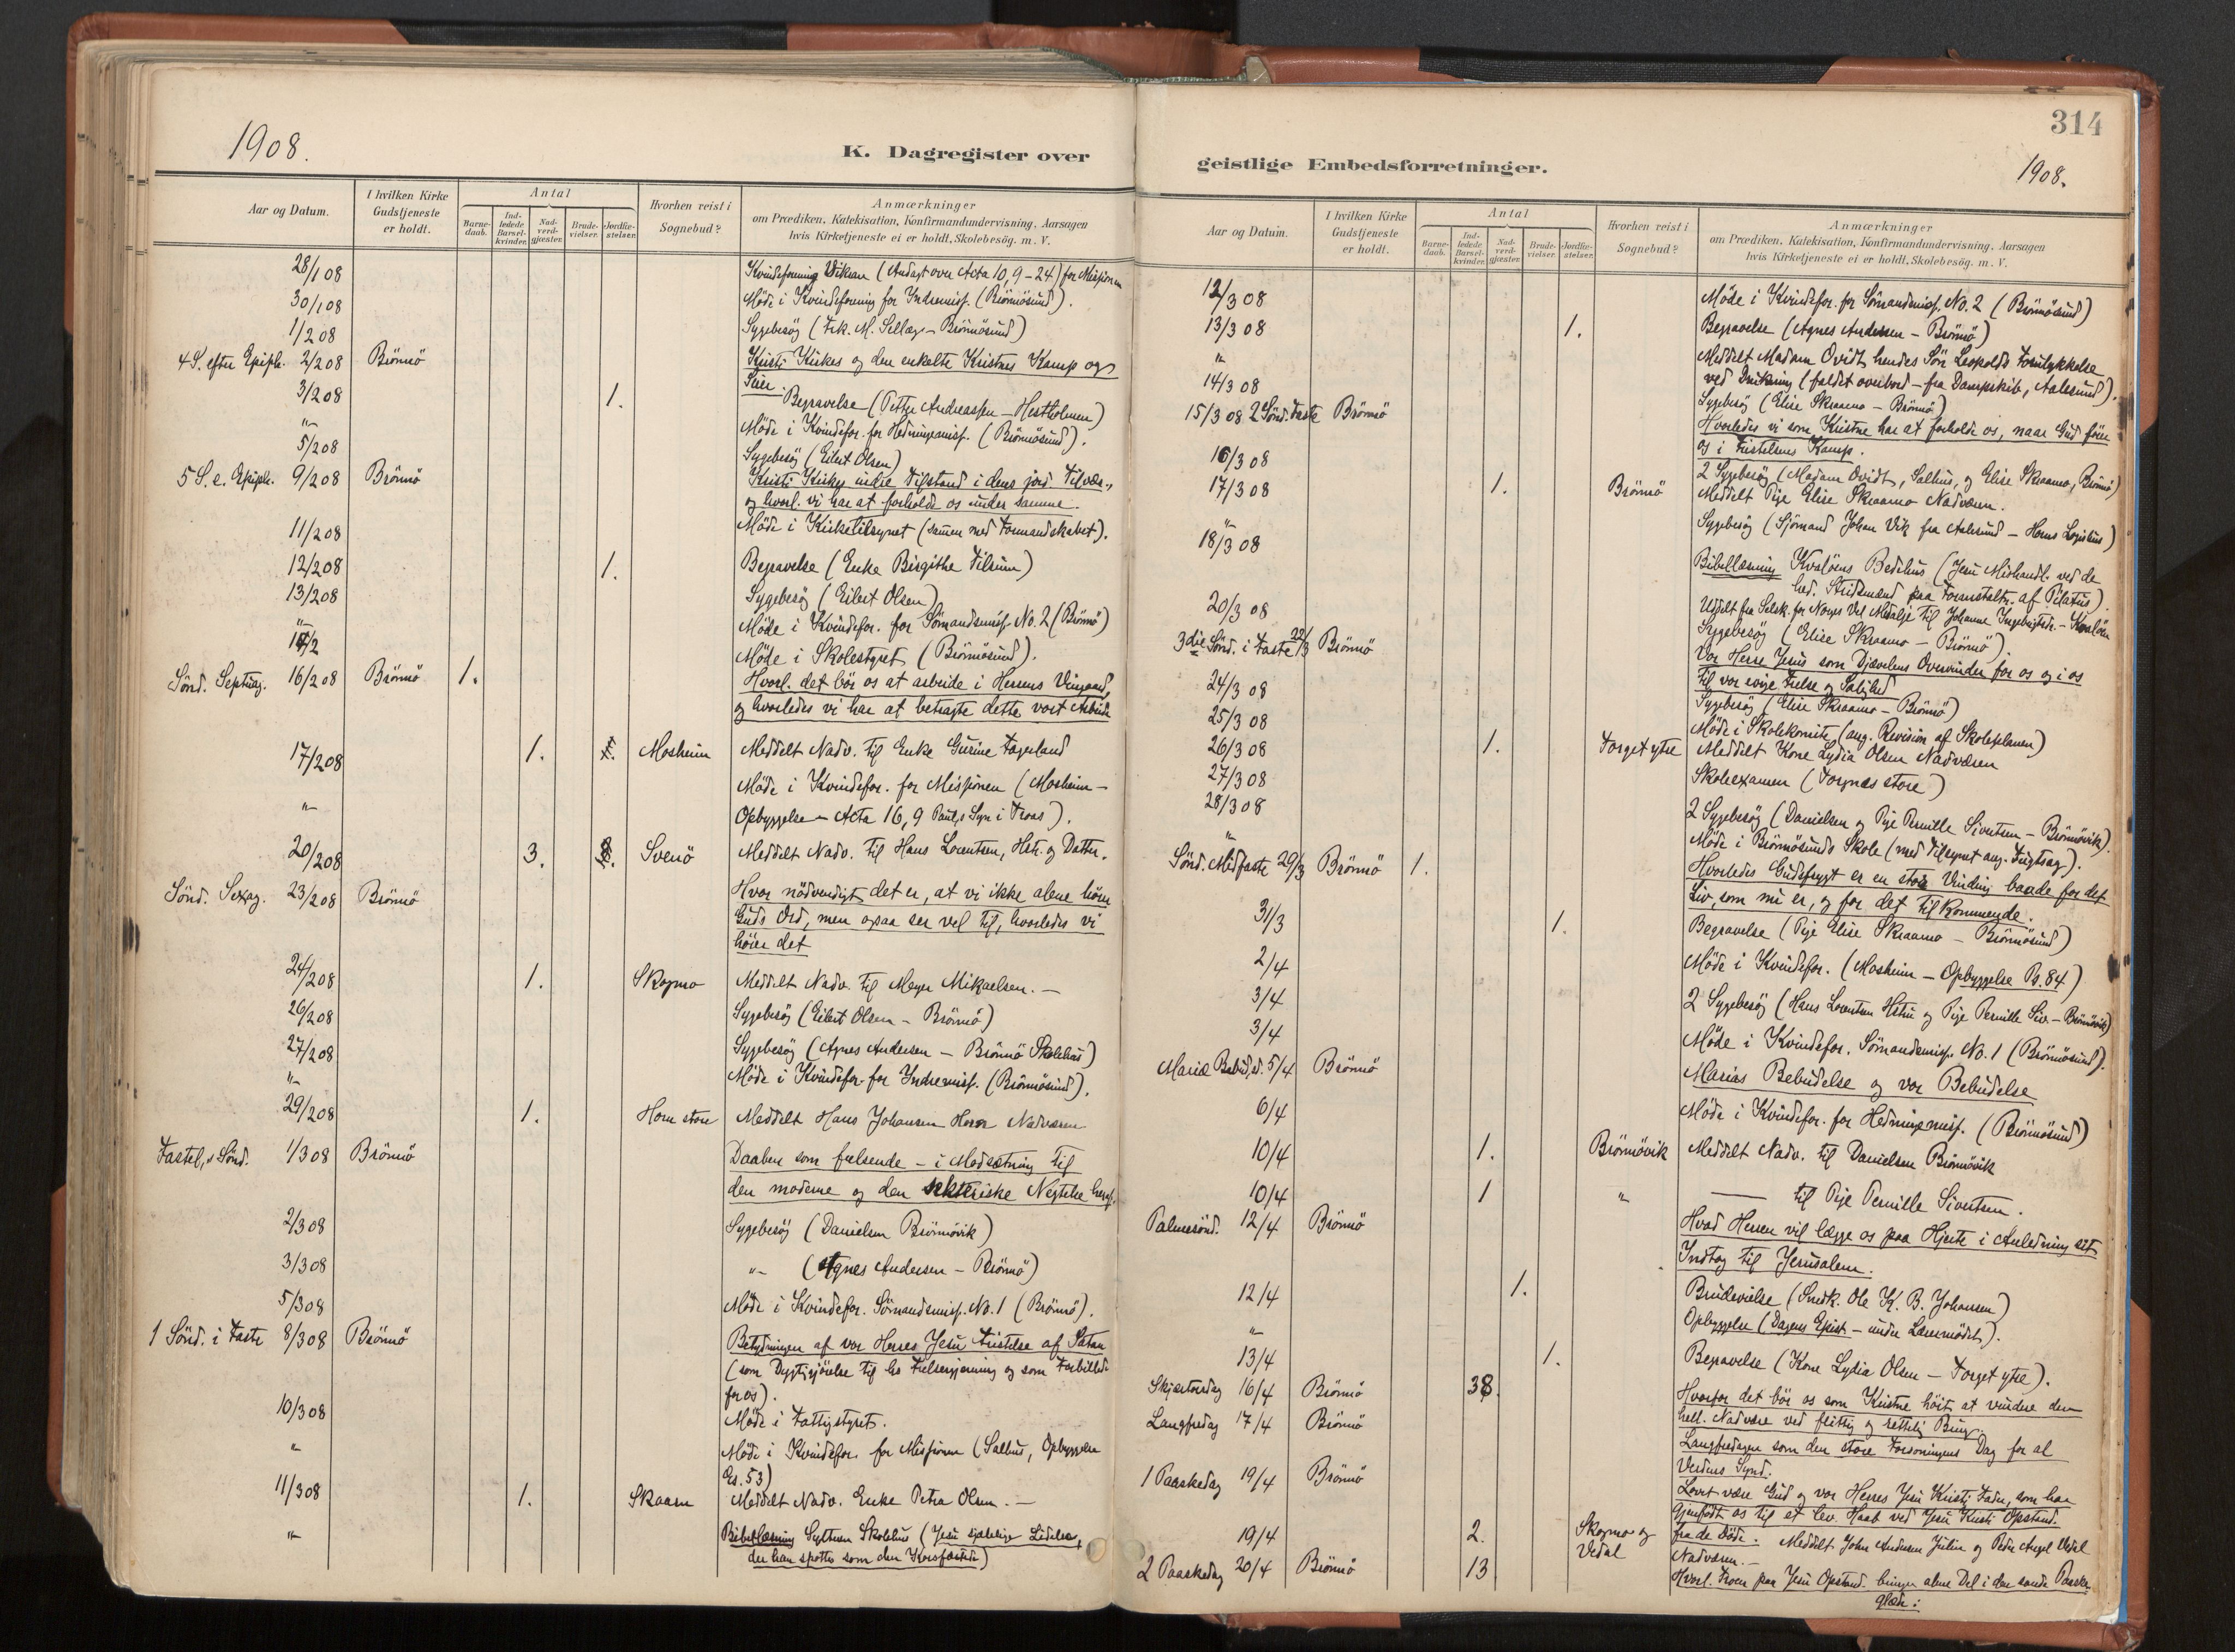 1908.
K. Dagregister over
Aar og Datum.
I hvilken Kirke Gudstjeneste er holdt.
Antal
Barnedaab.
Indledede Barselkvinder.
Nadverdgjæster.
Brudevielser.
Jordfæstelser.
Hvorhen reist i Sognebud?
Anmærkninger
om Prædiken, Katekisation, Konfirmandundervisning, Aarsagen
hvis Kirketjeneste ei er holdt, Skolebesög. m. V.
28/1 08 Kvindeforening Vikran (Andagt over Acta 10, 9-24) for Missionen
30/1 08 Möde i Kvindeforening for Indremiss. (Brönnösund).
1/2 08 Sygebesög (Frk. M. Sellæg - Brönnösund)
4 S. efter Epiph. 2/2 08 Brönnö Kristi Kirkes og den enkelte Kristnes Kamp og
Seier.
3/2 08 1. Begravelse (Petter Andreassen - Hestholmen)
"- Möde i Kvindefor. for Hedningemiss. (Brönnösund).
5/2 08 Sygebesög (Eilert Olsen)
5 S. e. Epiph. 9/2 08 Brönnö Kristi Kirkes indre Tilstand i dens jord. Tilvær.,
og hvorl. vi har at forholde os under samme.
11/2 08 Möde i Kirketilsynet (sammen med Formandskabet).
12/2 08 1. Begravelse (Enke Birgithe Tilrum)
13/2 08 Sygebesög (Eilert Olsen)
"- Möde i Kvindefor. for Sömandsmiss. No. 2 (Brönnö)
14/2 Möde i Skolestyret (Brönnösund).
Sönd. Septuag. 16/2 08 Brönnö 1. Hvorl. det bör os at arbeide i Herrens Vingaard,
og hvorledes vi har at betragte dette vort Arbeide
17/2 08 1. Mosheim Meddelt Nadv. til Enke Gurine Fageland
"- Möde i Kvindefor. for Missionen (Mosheim -
Opbyggelse - Acta 16, 9 Paul,s Syn i Troas).
20/2 08 3. Svenö Meddelt Nadv. til Hans Lorentsen, Hstr. og Datter.
Sönd. Sexag. 23/2 08 Brönnö Hvor nödvendigt det er, at vi ikke alene hörer
Guds Ord, men ogsaa ser vel til, hvorledes vi
hörer det
24/2 08 1. Skogmo Meddelt Nadv. til Meyer Mikaelsen. -
26/2 08 Sygebesög (Eilert Olsen - Brönnö)
27/2 08 Sygebesög (Agnes Andersen - Brönnö Skolehus)
"- Möde i Kvindefor. for Indremiss. (Brönnösund).
29/2 08 1. Horn store Meddelt Hans Johansen Horn Nadveren
Fastel,s Sönd. 1/3 08 Brönnö Daaben som frelsende - i Modsætning til
den moderne og den sekteriske Negtelse heraf.
2/3 08 Sygebesög (Danielsen Brönnövik)
3/3 08 "- (Agnes Andersen - Brönnö)
5/3 08 Möde i Kvindefor. Sömandsmiss. No. 1 (Brönnö).
1 Sönd. i Faste 8/3 08 Brönnö Betydningen af vor Herres Jesu Fristelse af Satan
(som Dygtiggjörelse til hs Frelsergjerning og som Forbillede
for os).
10/3 08 Möde i Fattigstyret.
" Möde i Kvindefor. for Missionen (Salhus, Opbyggelse
Es. 53)
11/3 08 1. Skaaren Meddelt Nadv. Enke Petra Olsen. -
"- Bibellæsning Sylteren Skolehus (Jesu sjælelige Lidelse,
der han spottes som den Korsfæstede)
314
1908.
geistlige Embedsforretninger.
Aar og Datum.
I hvilken Kirke Gudstjeneste er holdt.
Antal
Barnedaab.
Indledede Barselkvinder.
Nadverdgjæster.
Brudevielser.
Jordfæstelser.
Hvorhen reist i Sognebud?
Anmærkninger
om Prædiken, Katekisation, Konfirmandundervisning, Aarsagen
hvis Kirketjeneste ei er holdt, Skolebesög. m. V.
12/3 08 Möde i Kvindefor. for Sömandsmiss. No. 2 (Brönnösund)
13/3 08 1. Begravelse (Agnes Andersen - Brönnö)
"- Meddelt Madam Ovidt hendes Sön Leopolds Forulykkelse
ved Drukning (faldet overbord - fra Dampskib, Aalesund).
14/3 08 Sygebesög (Elise Skraamo - Brönnö)
15/3 08 2 Sönd. Faste Brönnö Hvorledes vi som Kristne har at forholde os, naar Gud förer
os i Fristelsens Kamp.
16/3 08 2 Sygebesög (Madam Ovidt, Salhus, og Elise Skraamo, Brönnö)
17/3 08 1. Brönnö Meddelt Pige Elise Skraamo Nadveren.
"- Sygebesög (Sjömand Johan Vik fra Aalesund - Horns Logishus)
18/3 08 Bibellæsning Kvalöens Bedehus (Jesu Mishandl. ved de
hed. Stridsmænd paa Foranstaltn. af Pilatus).
Uddelt fra Selsk. for Norges Vel Medalje til Johanne Ingebrigtsdr. - Kvalöen
20/3 08 Sygebesög (Elise Skraamo - Brönnö)
3die Sönd. i Faste 22/3 Brönnö Vor Herre Jesus som Djævelens Overvinder for os og i os
til vor evige Frelse og Salighed
24/3 08 Sygebesög (Elise Skraamo - Brönnö)
25/3 08 Möde i Skolekomite (ang. Revision af Skoleplanen)
26/3 08 1. Torget ytre Meddelt Kone Lydia Olsen Nadveren
27/3 08 Skoleexamen (Torgnes store)
28/3 08 2 Sygebesög (Danielsen og Pige Pernille Sivertsen - Brönnövik).
"- Möde i Brönnösunds Skole (med Tilsynet ang. Tugtsag).
Sönd. Midfaste 29/3 Brönnö 1. Hvorledes Gudsfrygt er en stor Vinding baade for det
Liv, som nu er, og for det tilkommende.
31/3 1. Begravelse (Pige Elise Skraamo - Brönnösund)
2/4 Möde i Kvindefor. (Mosheim - Opbyggelse Ps. 84)
3/4 2 Sygebesög (Hans Lorentsen Hstru og Pige Pernille Siv. - Brönnövik)
3/4 Möde i Kvindefor. Sömandsmiss. No. 1 (Brönnösund).
Mariæ Bebud,s d. 5/4 Brönnö Marias Bebudelse og vor Bebudelse
6/4 Möde i Kvindefor. for Hedningemiss. (Brönnösund)
10/4 1. Brönnövik Meddelt Nadv. til Danielsen Brönnövik
10/4 1 "- — til Pige Pernille Sivertsen.
Palmesönd. 12/4 Brönnö Hvad Herren vil lægge os paa Hjerte i Anledning sit
Indtog til Jerusalem.
12/4 1. Brudevielse (Snedk. Ole K. B. Johansen)
"- Opbyggelse (Dagens Epist. - under Læsemödet).
13/4 1. Begravelse (Kone Lydia Olsen - Torget ytre).
Skjærtorsdag 16/4 Brönnö 38. Hvorfor det bör os som Kristne höit at vurdere den
hell. Nadvere ved flittig og rettelig Brug.
Langfredag 17/4 Brönnö Langfredagen som den store Forsoningens Dag for al
Verdens Synd.
1 Paaskedag 19/4 Brönnö Lovet være Gud og vor Herres Jesu Kristi Fader, som har
gjenfödt os til et lev. Haab ved Jesu Kristi Opstand.
19/4 2. Skogmo og Vedal fra de Döde. Meddelt John Andersen Julin og Peder Angel Vedal
Nadveren. -
2 Paaskedag 20/4 Brönnö 13 Hvorl. Troen paa Jesu Opstand. bringer alene Del i den sande Paaske
glæde.